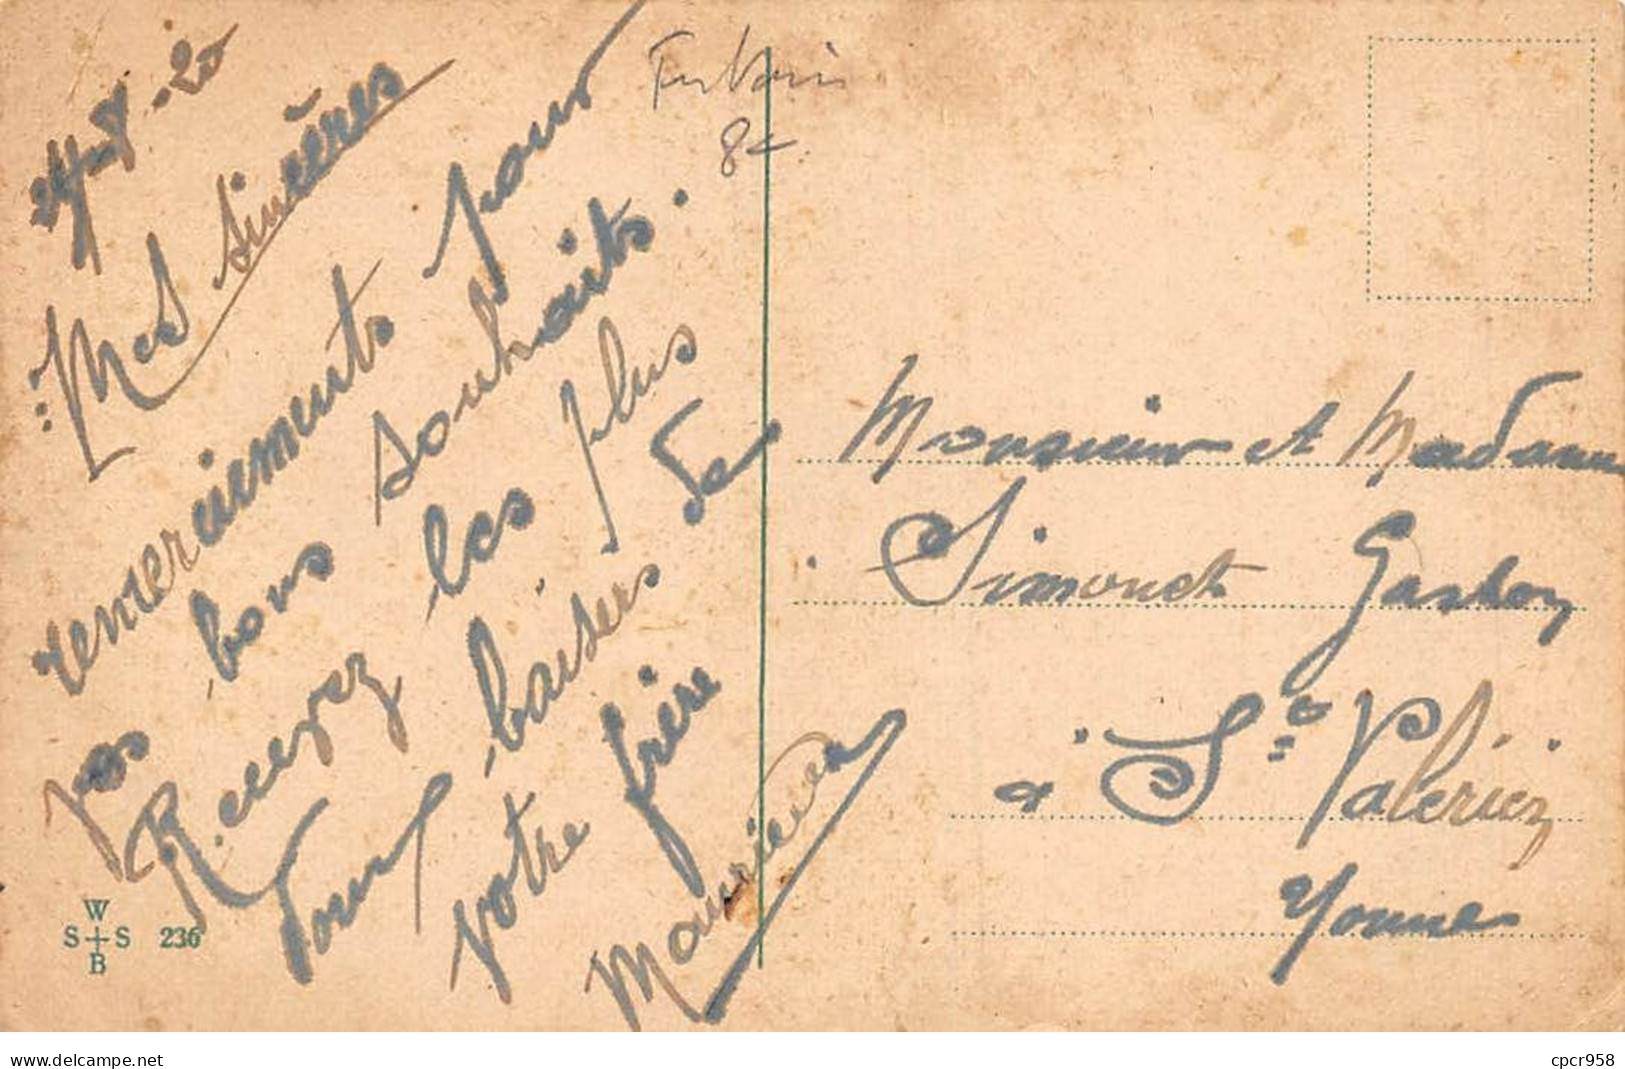 24-8-20
Mes sincères
remerciements pour
vos bons souhaits.
Recevez les plus
doux baisers de
votre frère
Maurice
8€
Monsieur et Madame
Simonet Gaston
à St Valérien
Yonne
W
S S 236
B
delcampe.net
cpcr958